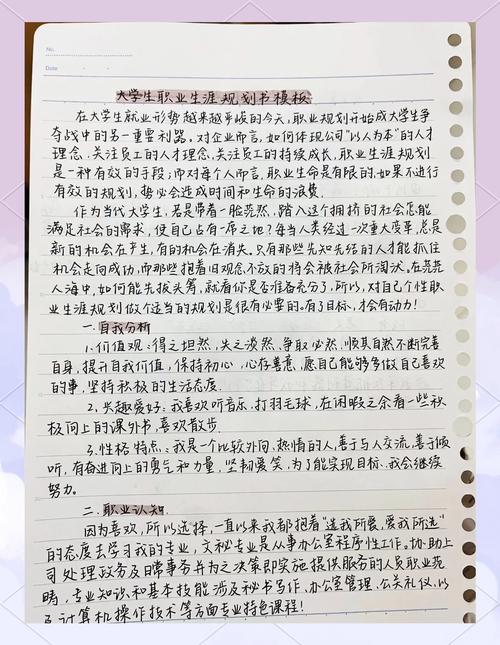 No.
Date
大学生职业生涯规划书模板
在大学生就业形势越来越严峻的今天,职业规划开始成大学生争
夺战中的另一重要利器。对企业而言,如何体现公司"以人为本"的人才
理念,关注员工的人才理念,关注员工的持续成长,职业生涯规划
是一种有效的手段;而对每个人而言,职业生命是有限的,如果不进行
有效的规划,势必会造成时间和生命的浪费.
作为当代大学生,若是带着一脸茫然,踏入这个拥挤的社会怎能
满足社会的需求,使自己占有一席之地?每当人类经过一次重大变革,总是
新的机会在产生,有的机会在消失。只有那些先知先结的人才能抓住
机会走向成功,而那些抱着旧观念不放的将会被社会所淘汰。在茫茫
人海中,如何能先拔头筹,就看你是否准备充分了,所以,对自己个性职
业生涯规划做个适当的规划是很有必要的。有了目标,才会有动力!
一.自我分析
1.价值观:得之坦然,失之漠然,争取必然,顺其自然不断完善
自身,提升自我价值,保持初心,心存善意,愿自己能够多做自己喜欢
的事,坚持积极的生活态度.
2.兴趣爱好:我喜欢听音乐,打羽毛球,在闲暇之余看一些积
极向上的课外书,喜欢散步.
3.性格特点:我是一个比较外向,热情的人,善于与人交流,善于倾
听,有奋进向上的勇气和力量,坚韧爱笑,为了能实现目标,我会继续
努力。
二.职业认知.
因为喜欢,所以选择,一直以来我都抱着"选我所爱,爱我所选"
的态度去学习我的专业,文秘专业是从事办公室程序性工作。协助上
司处理政务及日常事务并为之决策即实施提供服务的人员职业范
畴,专业知识和基本技能涉及秘书写作、办公室管理、公关礼仪,以
及计算机操作技术等方面专业特色课程!